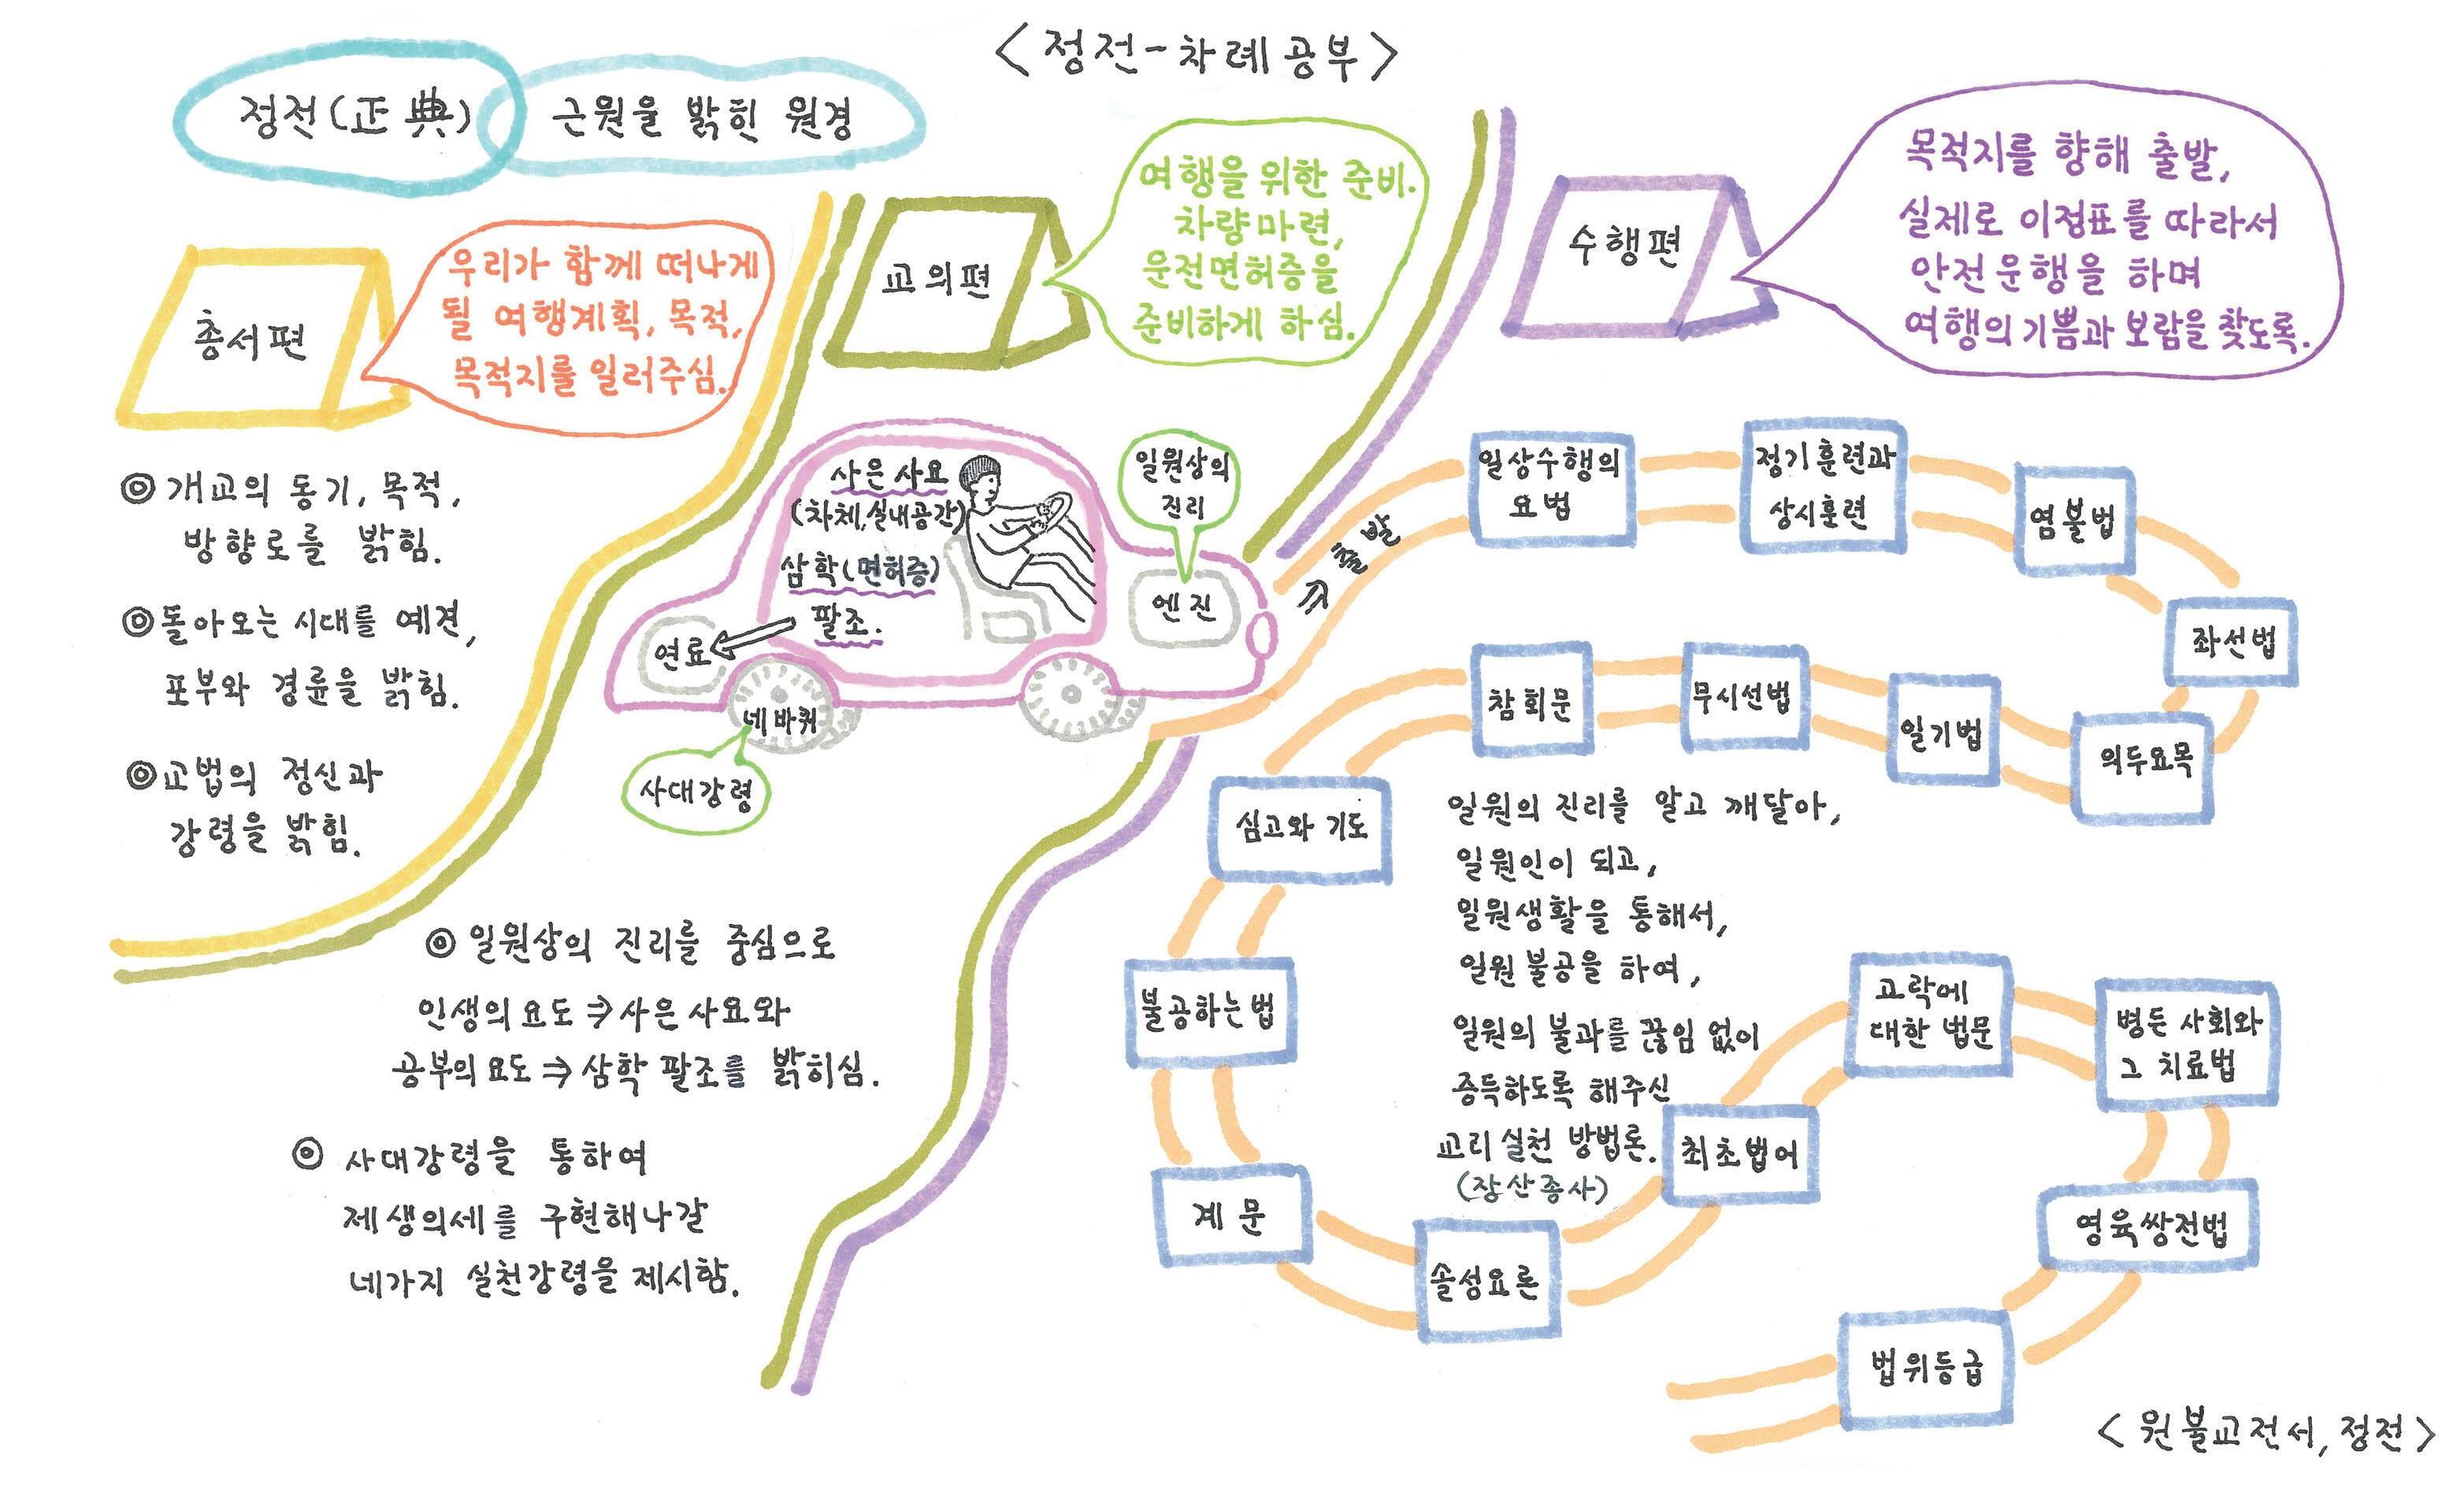 <정전-차례공부>
정전(正典)
근원을 밝힌 원경
총서편
우리가 함께 떠나게
될 여행계획, 목적,
목적지를 일러주심.
◎ 개교의 동기, 목적,
방향로를 밝힘.
◎ 돌아오는 시대를 예견,
포부와 경륜을 밝힘.
◎ 교법의 정신과
강령을 밝힘.
교의편
여행을 위한 준비.
차량마련,
운전면허증을
준비하게 하심.
사은사요
(차체,실내공간)
삼학(면허증)
팔조.
연료
일원상의
진리
엔진
네바퀴
사대강령
◎ 일원상의 진리를 중심으로
인생의요도 ⇒ 사은사요와
공부의요도 ⇒ 삼학 팔조를 밝히심.
◎ 사대강령을 통하여
제생의세를 구현해나갈
네가지 실천강령을 제시함.
수행편
목적지를 향해 출발,
실제로 이정표를 따라서
안전운행을 하며
여행의 기쁨과 보람을 찾도록.
출발
일상수행의
요법
정기훈련과
상시훈련
염불법
좌선법
의두요목
일기법
무시선법
참회문
심고와 기도
불공하는법
계문
솔성요론
최초법어
고락에
대한 법문
병든 사회와
그 치료법
영육쌍전법
법위등급
일원의 진리를 알고 깨달아,
일원인이 되고,
일원생활을 통해서,
일원 불공을 하여,
일원의 불과를 끊임 없이
증득하도록 해주신
교리실천 방법론.
(장산종사)
<원불교전서, 정전>